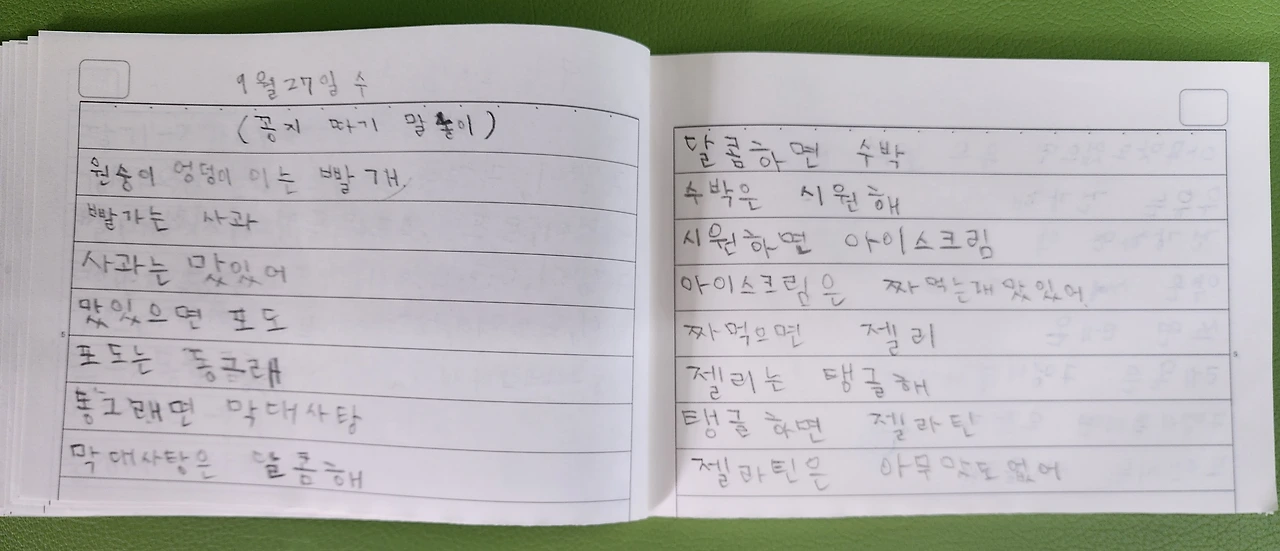 9월 27일 수
(꽁지 따기 말놀이)
원숭이 엉덩이 이는 빨개
빨가는 사과
사과는 맛있어
맛있으면 포도
포도는 동그래
동그래면 막대사탕
막대사탕은 달콤해
달콤하면 수박
수박은 시원해
시원하면 아이스크림
아이스크림은 짜먹는개 맛있어.
짜먹으면 젤리
젤리는 탱글해
탱글하면 젤라틴
젤라틴은 아무맛도없어